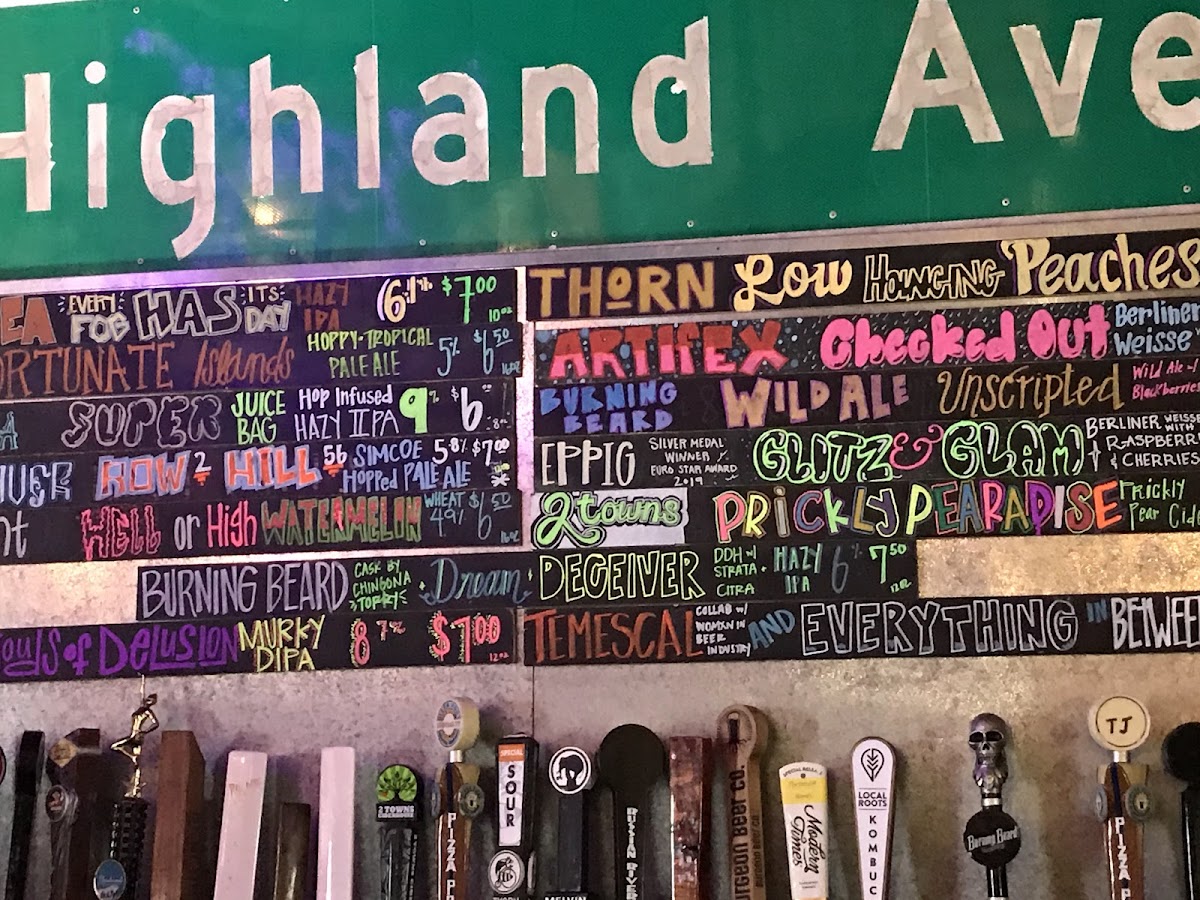 Highland Ave
EA EVERY FOG HAS ITS DAY HAZY IPA 6.1% $7.00 10oz
ORTUNATE Islands HOPPY-TROPICAL PALE ALE 5% $6.50 16oz
A SUPER JUICE BAG Hop Infused HAZY IIPA 9% $6.00 8oz
HOW 2 HILL 56 SIMCOE Hopped PALE ALE 5.8% $7.00
nt HELL or High WATERMELON WHEAT 4.9% $6.50 16oz
BURNING BEARD CASK BY CHINGONA TORRY Dream DECEIVER DDH w/ STRATA + CITRA HAZY IPA 6% 7.50 12oz
ouds of DELUSION MURKY DIPA 8.7% $7.00 12oz
THORN Low HANGING Peaches
ARTIFEX Checked Out Berliner Weisse
BURNING BEARD WILD ALE Unscripted Wild Ale w/ Blackberries
EPPIG SILVER MEDAL WINNER EURO STAR AWARD 2019 GLITZ & GLAM BERLINER WEISSE WITH RASPBERRY & CHERRIES
2 towns PRICKLY PEARADISE Prickly Pear Cide
TEMESCAL COLLAB w/ WOMXN IN BEER INDUSTRY AND EVERYTHING IN BETWEE
2 TOWNS
PIZZA PO
SPECIAL SOUR
THORN
MELVIN
RUSSIAN RIVER
urgeon Beer Co.
Modern Times
LOCAL ROOTS KOMBUC
Burning Beard
TJ
PIZZA P